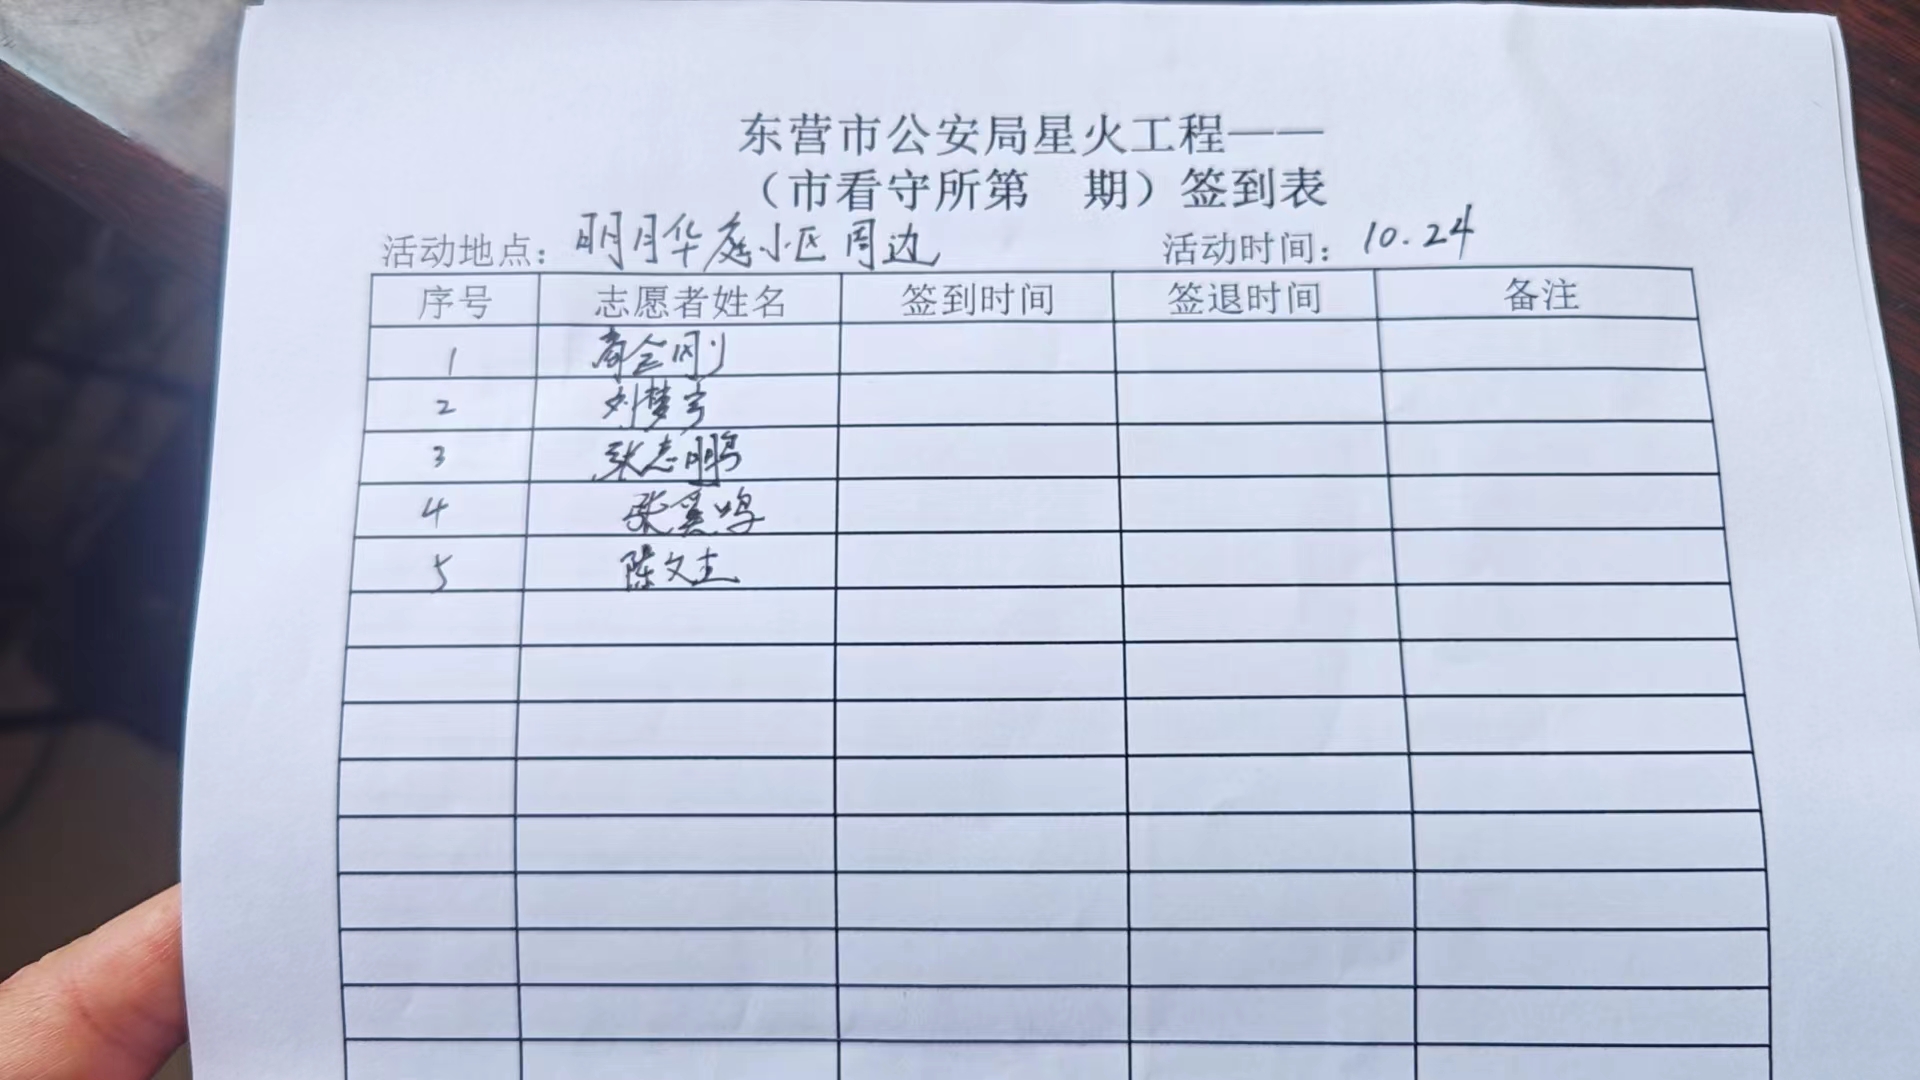 东营市公安局星火工程——
（市看守所第 期）签到表
活动地点：明月华庭小区周边 活动时间：10.24
序号 志愿者姓名 签到时间 签退时间 备注
1
2 刘梦宇
3 张志鹏
4 张 鸣
5 陈文杰